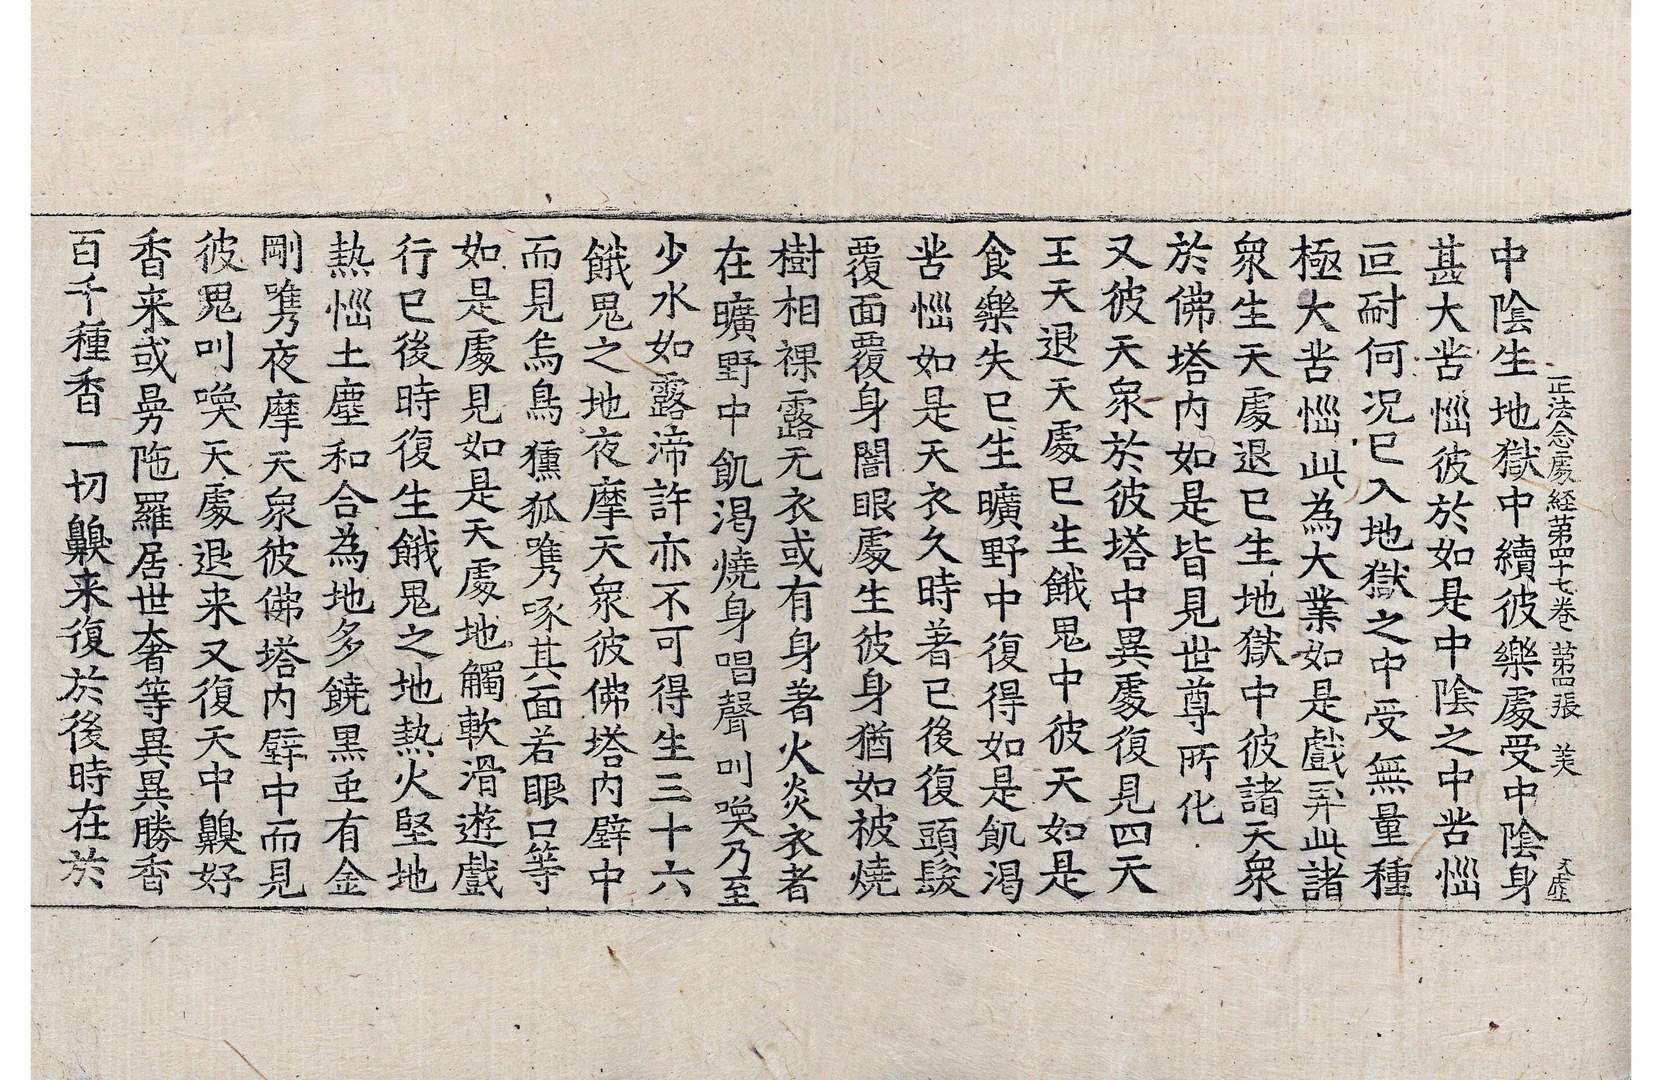 正法念處経第四十七卷 第四張 羙
中陰生地獄中續彼樂處受中陰身
甚大苦惱彼於如是中陰之中苦惱
叵耐何況已入地獄之中受無量種
極大苦惱此為大業如是戲弄此諸
衆生天處退已生地獄中彼諸天衆
於佛塔内如是皆見世尊所化
又彼天衆於彼塔中異處復見四天
王天退天處已生餓鬼中彼天如是
食樂失已生曠野中復得如是飢渴
苦惱如是天衣久時著已後復頭髮
覆面覆身闇眼處生彼身猶如被燒
樹相裸露无衣或有身著火炎衣者
在曠野中飢渇燒身唱聲叫喚乃至
少水如露渧許亦不可得生三十六
餓鬼之地夜摩天衆彼佛塔内壁中
而見烏鳥獯狐鵰啄其面若眼口等
如是處見如是天處地觸軟滑遊戲
行已後時復生餓鬼之地熱火堅地
熱惱土塵和合為地多饒黒虫有金
剛嘴夜摩天衆彼佛塔内壁中而見
彼鬼叫喚天處退来又復天中齅好
香来或曼陁羅居世奢等異異勝香
百千種香一切齅来復於後時在於